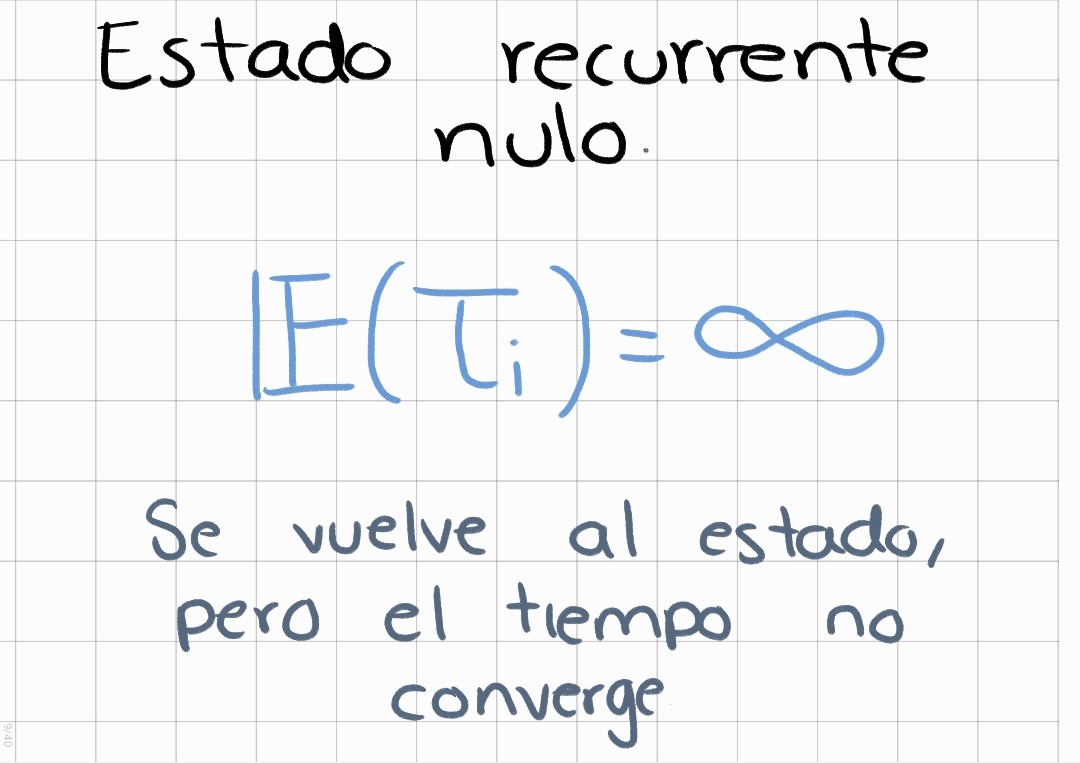 Estado recurrente
nulo.
𝔼(τᵢ) = ∞
Se vuelve al estado,
pero el tiempo no
converge
9/40